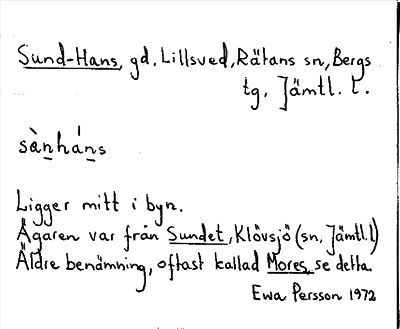 Sund-Hans, gd, Lillsved, Rätans sn, Bergs
tg, Jämtl. l.
sàn̲hán̲s
Ligger mitt i byn.
Ägaren var från Sundet, Klövsjö (sn, Jämtl.l)
Äldre benämning, oftast kallad Mores, se detta.
Ewa Persson 1972